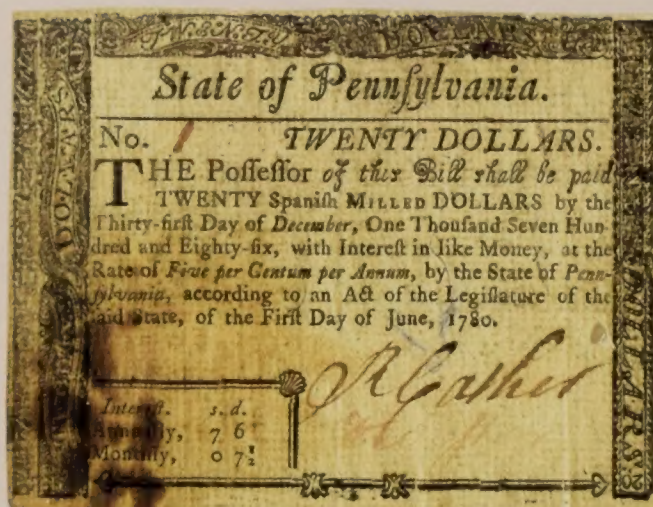 TWENTY DOLLARS
State of Pennſylvania.
No. 1 TWENTY DOLLARS.
THE Poſſeſſor of this Bill shall be paid
TWENTY Spaniſh MILLED DOLLARS by the
Thirty-firſt Day of December, One Thouſand Seven Hun-
dred and Eighty-ſix, with Intereſt in like Money, at the
Rate of Five per Centum per Annum, by the State of Penn-
ſylvania, according to an Act of the Legiſlature of the
ſaid State, of the Firſt Day of June, 1780.
Intereſt. s. d.
Annually, 7 6
Monthly, 0 7½
DOLLARS
DOLLARS